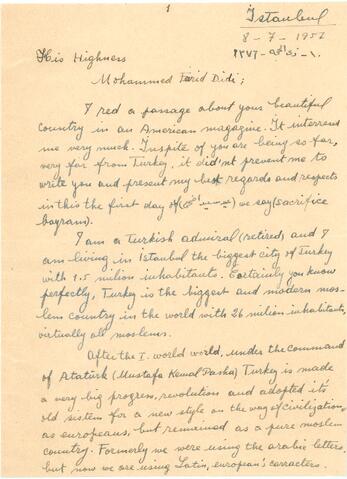 1
Istanbul
8-7-1957
His Highness
Mohammed Farid Didi;
I red a passage about your beautiful
country in an American magazine. It interrend
me very much. Inspite of you are being so far,
very far from Turkey, it did not prevent me to
write you and present my best regards and respects
in this the first day of ( ) we say (sacrifice
bayram).
I am a Turkish admiral (retired) and I
am living in Istanbul the biggest city of Turkey
with 1.5 milion inhabitants. Certainly you know
perfectly, Turkey is the biggest and modern mos-
lem country in the world with 26 million inhabitants,
virtually all moslems.
After the I. world world, under the command
of Atatürk (Mustafa Kemal Pasha) Turkey is made
a very big progress, revolutions and adopted its
old sistem for a new style on the way of civiligation,
as europeans, but remained as a pure moslem
country. Formerly we were using the arabic letters.
but now we are using Latin, european's carracters.